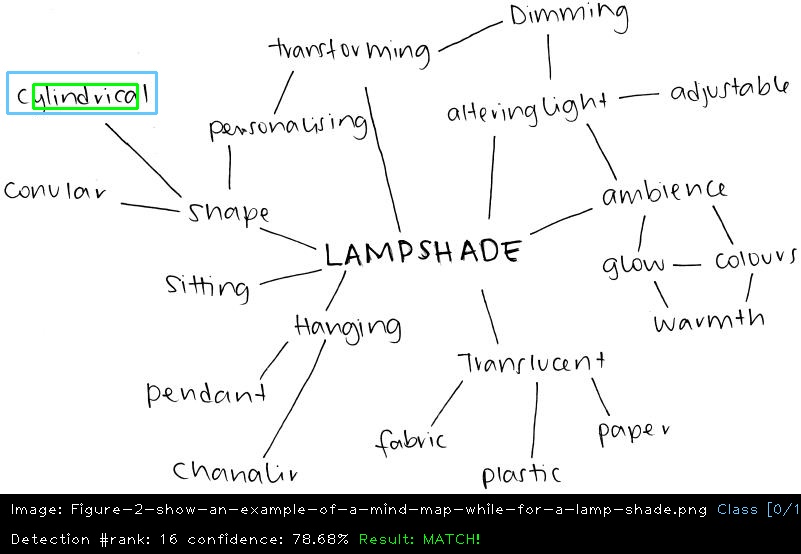 Dimming
transforming
cylindrical
alteringlight
adjustable
personalising
conular
shape
ambience
LAMPSHADE
glow
colours
sitting
Hanging
warmth
Translucent
pendant
fabric
paper
chanalir
plastic
Image: Figure-2-show-an-example-of-a-mind-map-while-for-a-lamp-shade.png Class [0/1
Detection #rank: 16 confidence: 78.68% Result: MATCH!